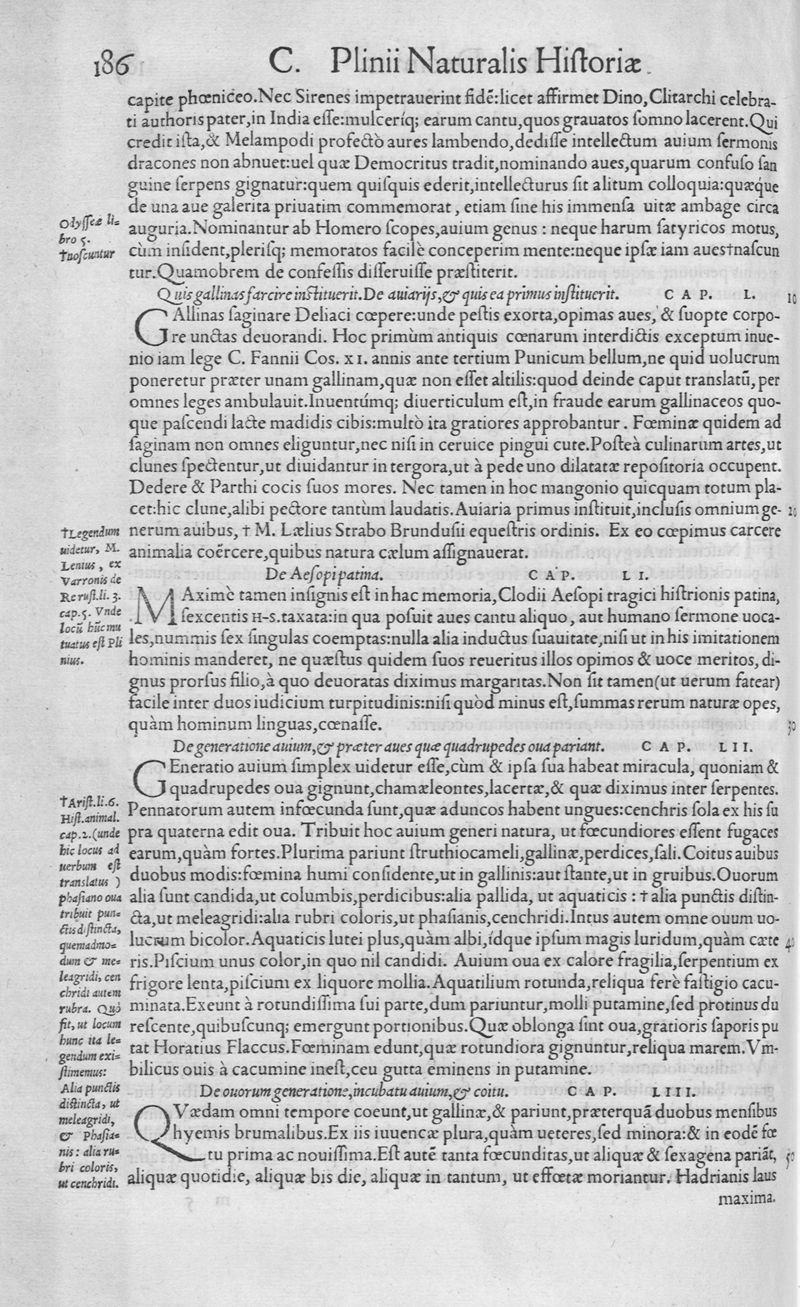 186 C. Plinii Naturalis Hiſtoriæ
capite phœniceo.Nec Sirenes impetrauerint fidē:licet affirmet Dino,Clitarchi celebra-
ti authoris pater,in India eſſe:mulceríq; earum cantu,quos grauatos ſomno lacerent.Qui
credit iſta,& Melampodi profectò aures lambendo,dediſſe intellectum auium ſermonis
dracones non abnuet:uel quæ Democritus tradit,nominando aues,quarum confuſo ſan
guine ſerpens gignatur:quem quiſquis ederit,intellecturus ſit alitum colloquia:quæque
de una aue galerita priuatim commemorat, etiam ſine his immenſa uitæ ambage circa
auguria.Nominantur ab Homero ſcopes,auium genus : neque harum ſatyricos motus,
cùm inſident,pleriſq; memoratos facilè conceperim mente:neque ipſæ iam aues†naſcun
tur.Quamobrem de confeſſis diſſeruiſſe præſtiterit.
Odyſſeæ li-
bro 5.
†noſcuntur
Quis gallinas farcire inſtituerit.De auiarijs,& quis ea primus inſtituerit. C A P. L. 10
GAllinas ſaginare Deliaci cœpere:unde peſtis exorta,opimas aues, & ſuopte corpo-
re unctas deuorandi. Hoc primùm antiquis cœnarum interdictis exceptum inue-
nio iam lege C. Fannii Cos. XI. annis ante tertium Punicum bellum,ne quid uolucrum
poneretur præter unam gallinam,quæ non eſſet altilis:quod deinde caput translatū, per
omnes leges ambulauit.Inuentúmq; diuerticulum eſt,in fraude earum gallinaceos quo-
que paſcendi lacte madidis cibis:multò ita gratiores approbantur. Fœminæ quidem ad
ſaginam non omnes eliguntur,nec niſi in ceruice pingui cute.Poſteà culinarum artes,ut
clunes ſpectentur,ut diuidantur in tergora,ut à pede uno dilatatæ repoſitoria occupent.
Dedere & Parthi cocis ſuos mores. Nec tamen in hoc mangonio quicquam totum pla-
cet:hic clune,alibi pectore tantùm laudatis.Auiaria primus inſtituit,incluſis omnium ge- 20
nerum auibus, † M. Lælius Strabo Brunduſii equeſtris ordinis. Ex eo cœpimus carcere
animalia coërcere,quibus natura cælum aſſignauerat.
†Legendum
uidetur, M.
Lenius, ex
Varronis de
Re ruſt.li. 3.
cap.5. Vnde
locū hūc mu
tuatus eſt Pli
nius.
De Aeſopi patina. C A P. L I.
MAximè tamen inſignis eſt in hac memoria,Clodii Aeſopi tragici hiſtrionis patina,
ſexcentis H-S.taxata:in qua poſuit aues cantu aliquo, aut humano ſermone uoca-
les,nummis ſex ſingulas coemptas:nulla alia inductus ſuauitate,niſi ut in his imitationem
hominis manderet, ne quæſtus quidem ſuos reueritus illos opimos & uoce meritos, di-
gnus prorſus filio,à quo deuoratas diximus margaritas.Non ſit tamen(ut uerum fatear)
facile inter duos iudicium turpitudinis:niſi quòd minus eſt,ſummas rerum naturæ opes,
quàm hominum linguas,cœnaſſe. 30
De generatione auium,& præter aues quæ quadrupedes oua pariant. C A P. L I I.
GEneratio auium ſimplex uidetur eſſe,cùm & ipſa ſua habeat miracula, quoniam &
quadrupedes oua gignunt,chamæleontes,lacertæ,& quæ diximus inter ſerpentes.
Pennatorum autem infœcunda ſunt,quæ aduncos habent ungues:cenchris ſola ex his ſu
pra quaterna edit oua. Tribuit hoc auium generi natura, ut fœcundiores eſſent fugaces
earum,quàm fortes.Plurima pariunt ſtruthiocameli,gallinæ,perdices,ſali.Coitus auibus
duobus modis:fœmina humi conſidente,ut in gallinis:aut ſtante,ut in gruibus.Ouorum
alia ſunt candida,ut columbis,perdicibus:alia pallida, ut aquaticis : † alia punctis diſtin-
cta,ut meleagridi:alia rubri coloris,ut phaſianis,cenchridi.Intus autem omne ouum uo-
lucrum bicolor.Aquaticis lutei plus,quàm albi,ídque ipſum magis luridum,quàm cæte 40
ris.Piſcium unus color,in quo nil candidi. Auium oua ex calore fragilia,ſerpentium ex
frigore lenta,piſcium ex liquore mollia.Aquatilium rotunda,reliqua ferè faſtigio cacu-
minata.Exeunt à rotundiſſima ſui parte,dum pariuntur,molli putamine,ſed protinus du
reſcente,quibuſcunq; emergunt portionibus.Quæ oblonga ſint oua,gratioris ſaporis pu
tat Horatius Flaccus.Fœminam edunt,quæ rotundiora gignuntur,reliqua marem.Vm-
bilicus ouis à cacumine ineſt,ceu gutta eminens in putamine.
†Ariſt.li.6.
Hiſt.animal.
cap.2.(unde
hic locus ad
uerbum eſt
translatus )
phaſiano oua
tribuit pun-
ctis diſtincta,
quemadmo-
dum & me-
leagridi, cen
chridi autem
rubra. Quò
fit,ut locum
hunc ita le-
gendum exi-
ſtimemus:
Alia punctis
diſtincta, ut
meleagridi,
& Phaſia-
nis : alia ru-
bri coloris,
ut cenchridi.
De ouorum generatione,incubatu auium,& coitu. C A P. L I I I.
QVædam omni tempore coeunt,ut gallinæ,& pariunt,præterquā duobus menſibus
hyemis brumalibus.Ex iis iuuencæ plura,quàm ueteres,ſed minora:& in eodē fœ
tu prima ac nouiſſima.Eſt autē tanta fœcunditas,ut aliquæ & ſexagena pariāt, 50
aliquæ quotidie, aliquæ bis die, aliquæ in tantum, ut effœtæ moriantur. Hadrianis laus
maxima.